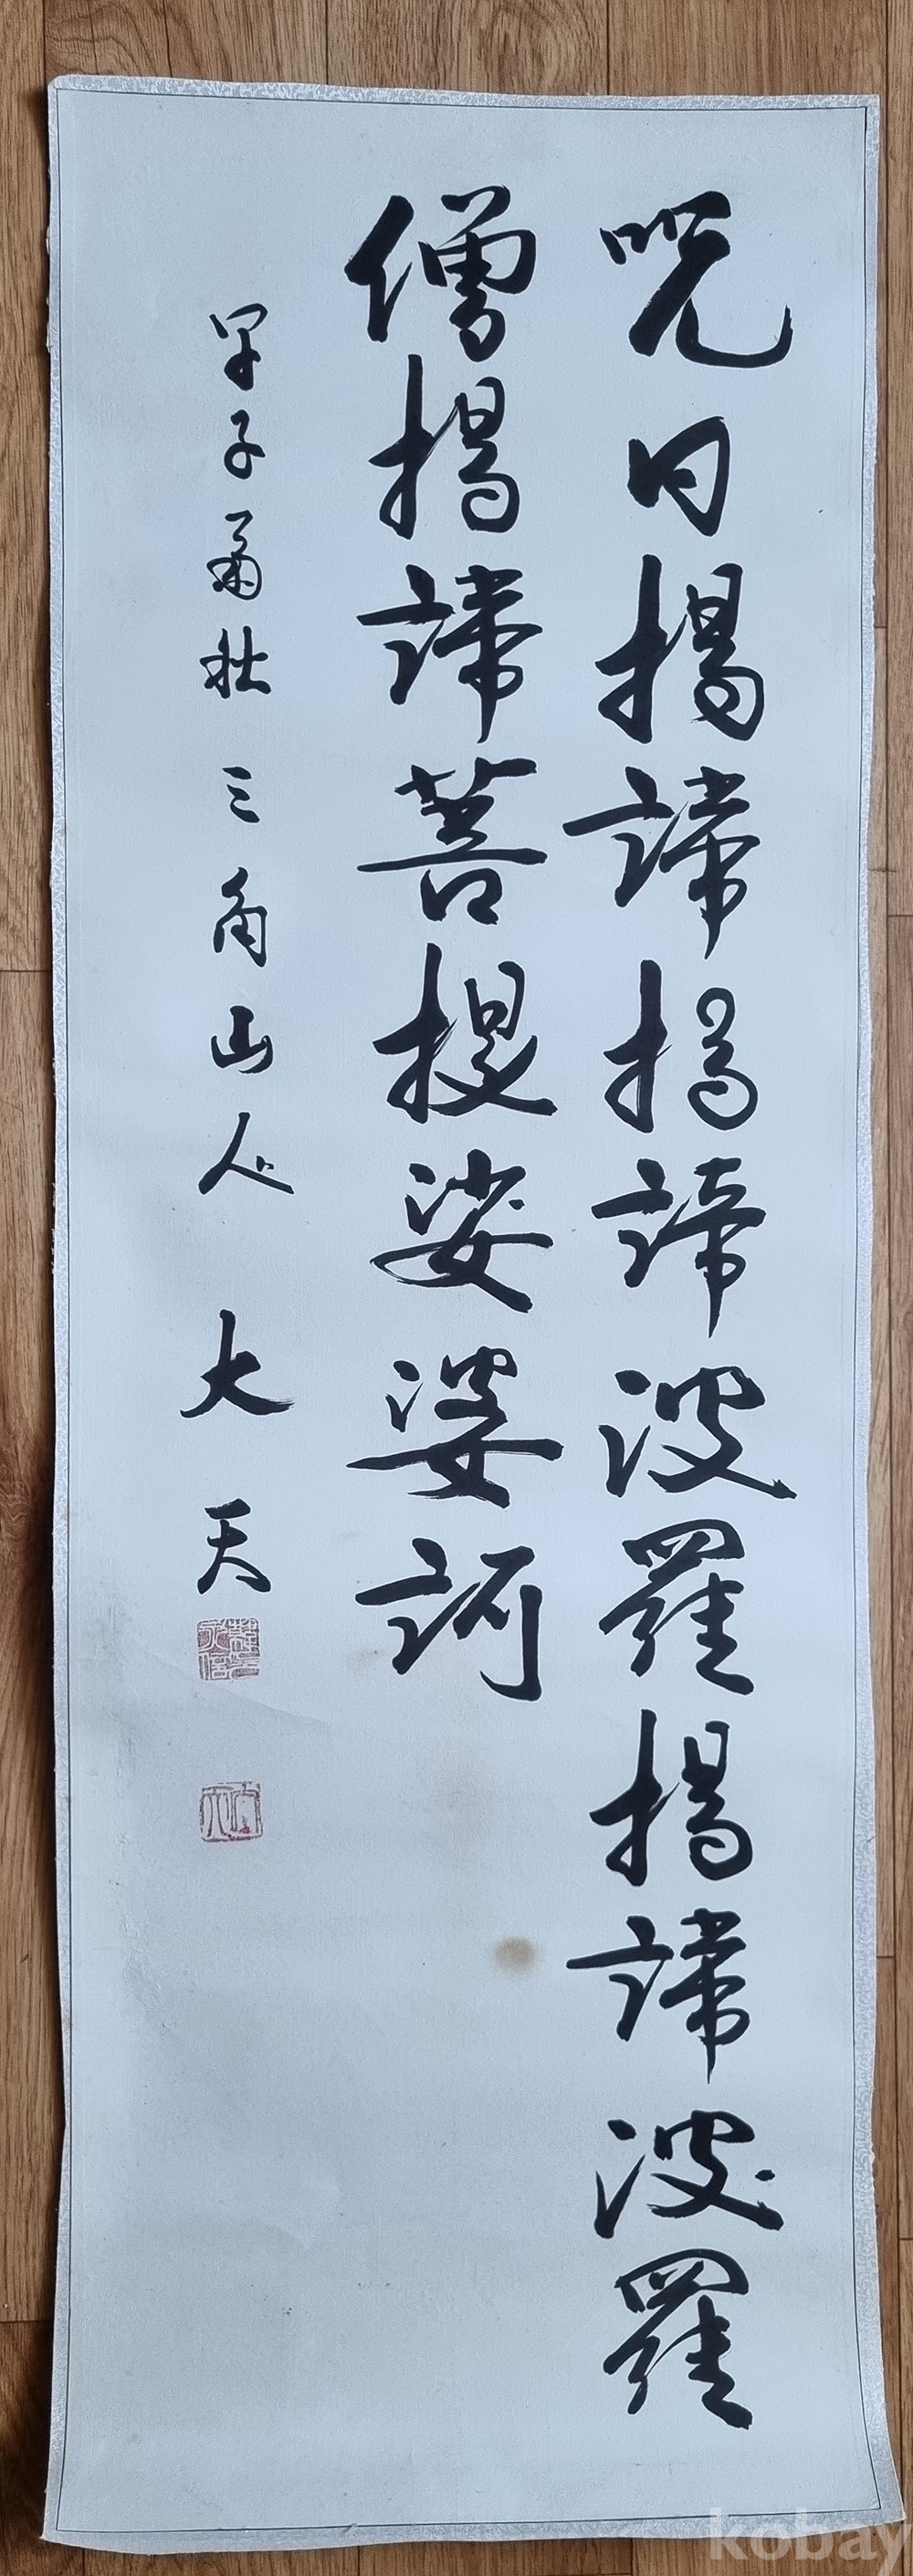 呪曰揭諦揭諦波羅揭諦波羅
僧揭諦菩提娑婆訶
甲子秋 三角山人 大天
kobay